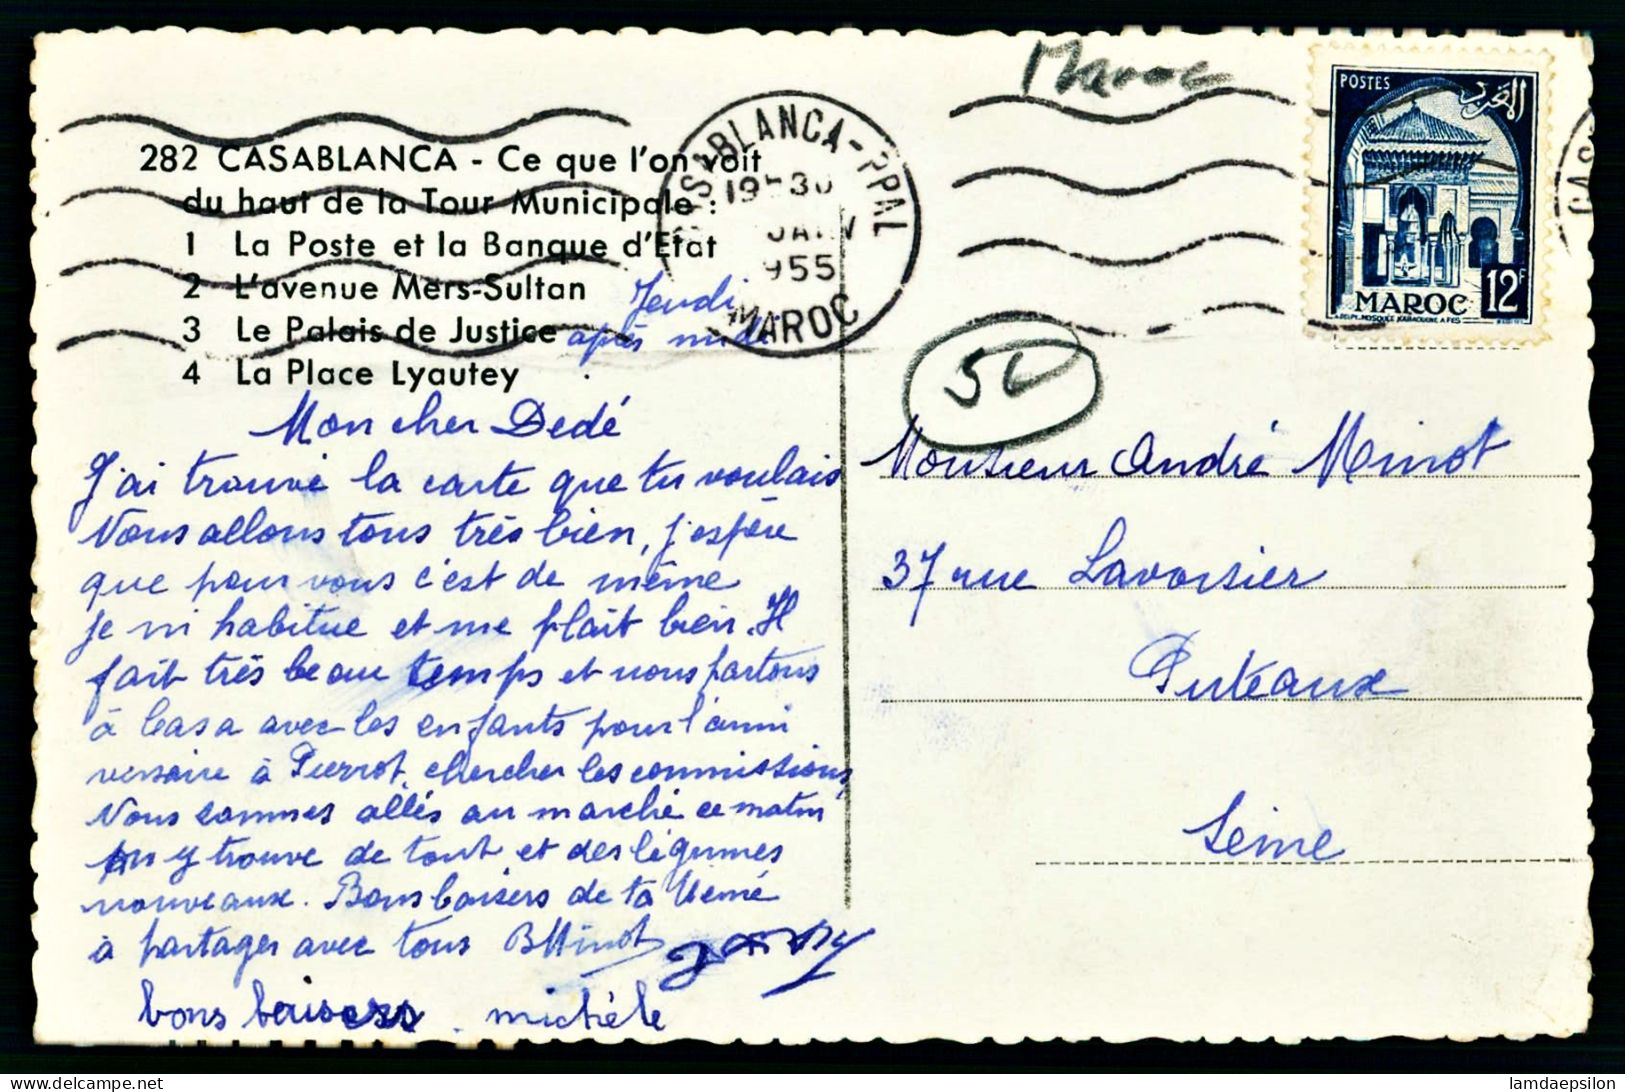 Maroc
282 CASABLANCA - Ce que l'on voit
du haut de la Tour Municipale :
1 La Poste et la Banque d'Etat
2 L'avenue Mers-Sultan
3 Le Palais de Justice
4 La Place Lyautey
CASABLANCA-PPAL
19H30
JANV
1955
MAROC
POSTES
المغرب
MAROC 12F
MOSQUEE KARAOUINE A FES
CAS
Jeudi
après midi
Mon cher Dedé
J'ai trouvé la carte que tu voulais
Nous allons tous très bien, j'espère
que pour vous c'est de même
je m'habitue et me plait bien. Il
fait très beau temps et nous partons
à Casa avec les enfants pour l'anni
versaire à Pierrot, chercher les commissions,
Nous sommes allés au marché ce matin
on y trouve de tout et des légumes
nouveaux. Bons baisers de ta Mémé
à partager avec tous BMinot
bons baisers . michèle
Monsieur André Minot
37 rue Lavoisier
Puteaux
Seine
lamdaepsilon